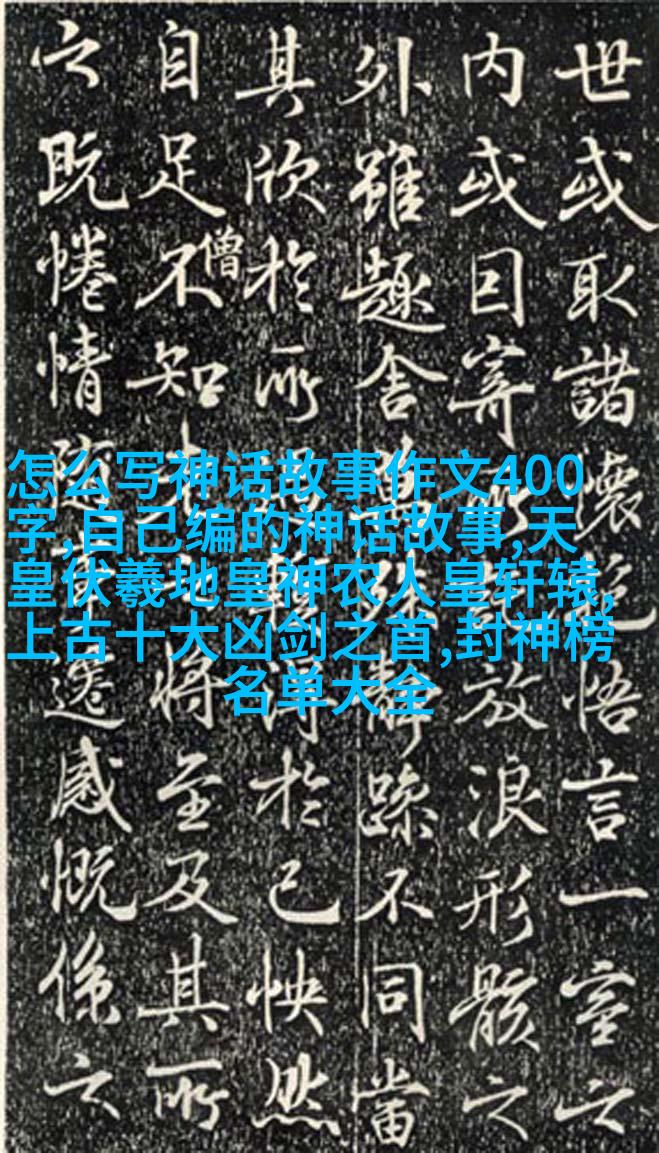 世或取諸懷抱悟言一室之
内或因寄所託放浪形骸之
外雖趣舍萬殊靜躁不同當
其欣於所遇暫得於己怏然
自足不知老之將至及其所
僧
之既惓情隨事遷感慨係之
怎么写神话故事作文400
字,自己编的神话故事,天
皇伏羲地皇神农人皇轩辕,
上古十大凶剑之首,封神榜
名单大全